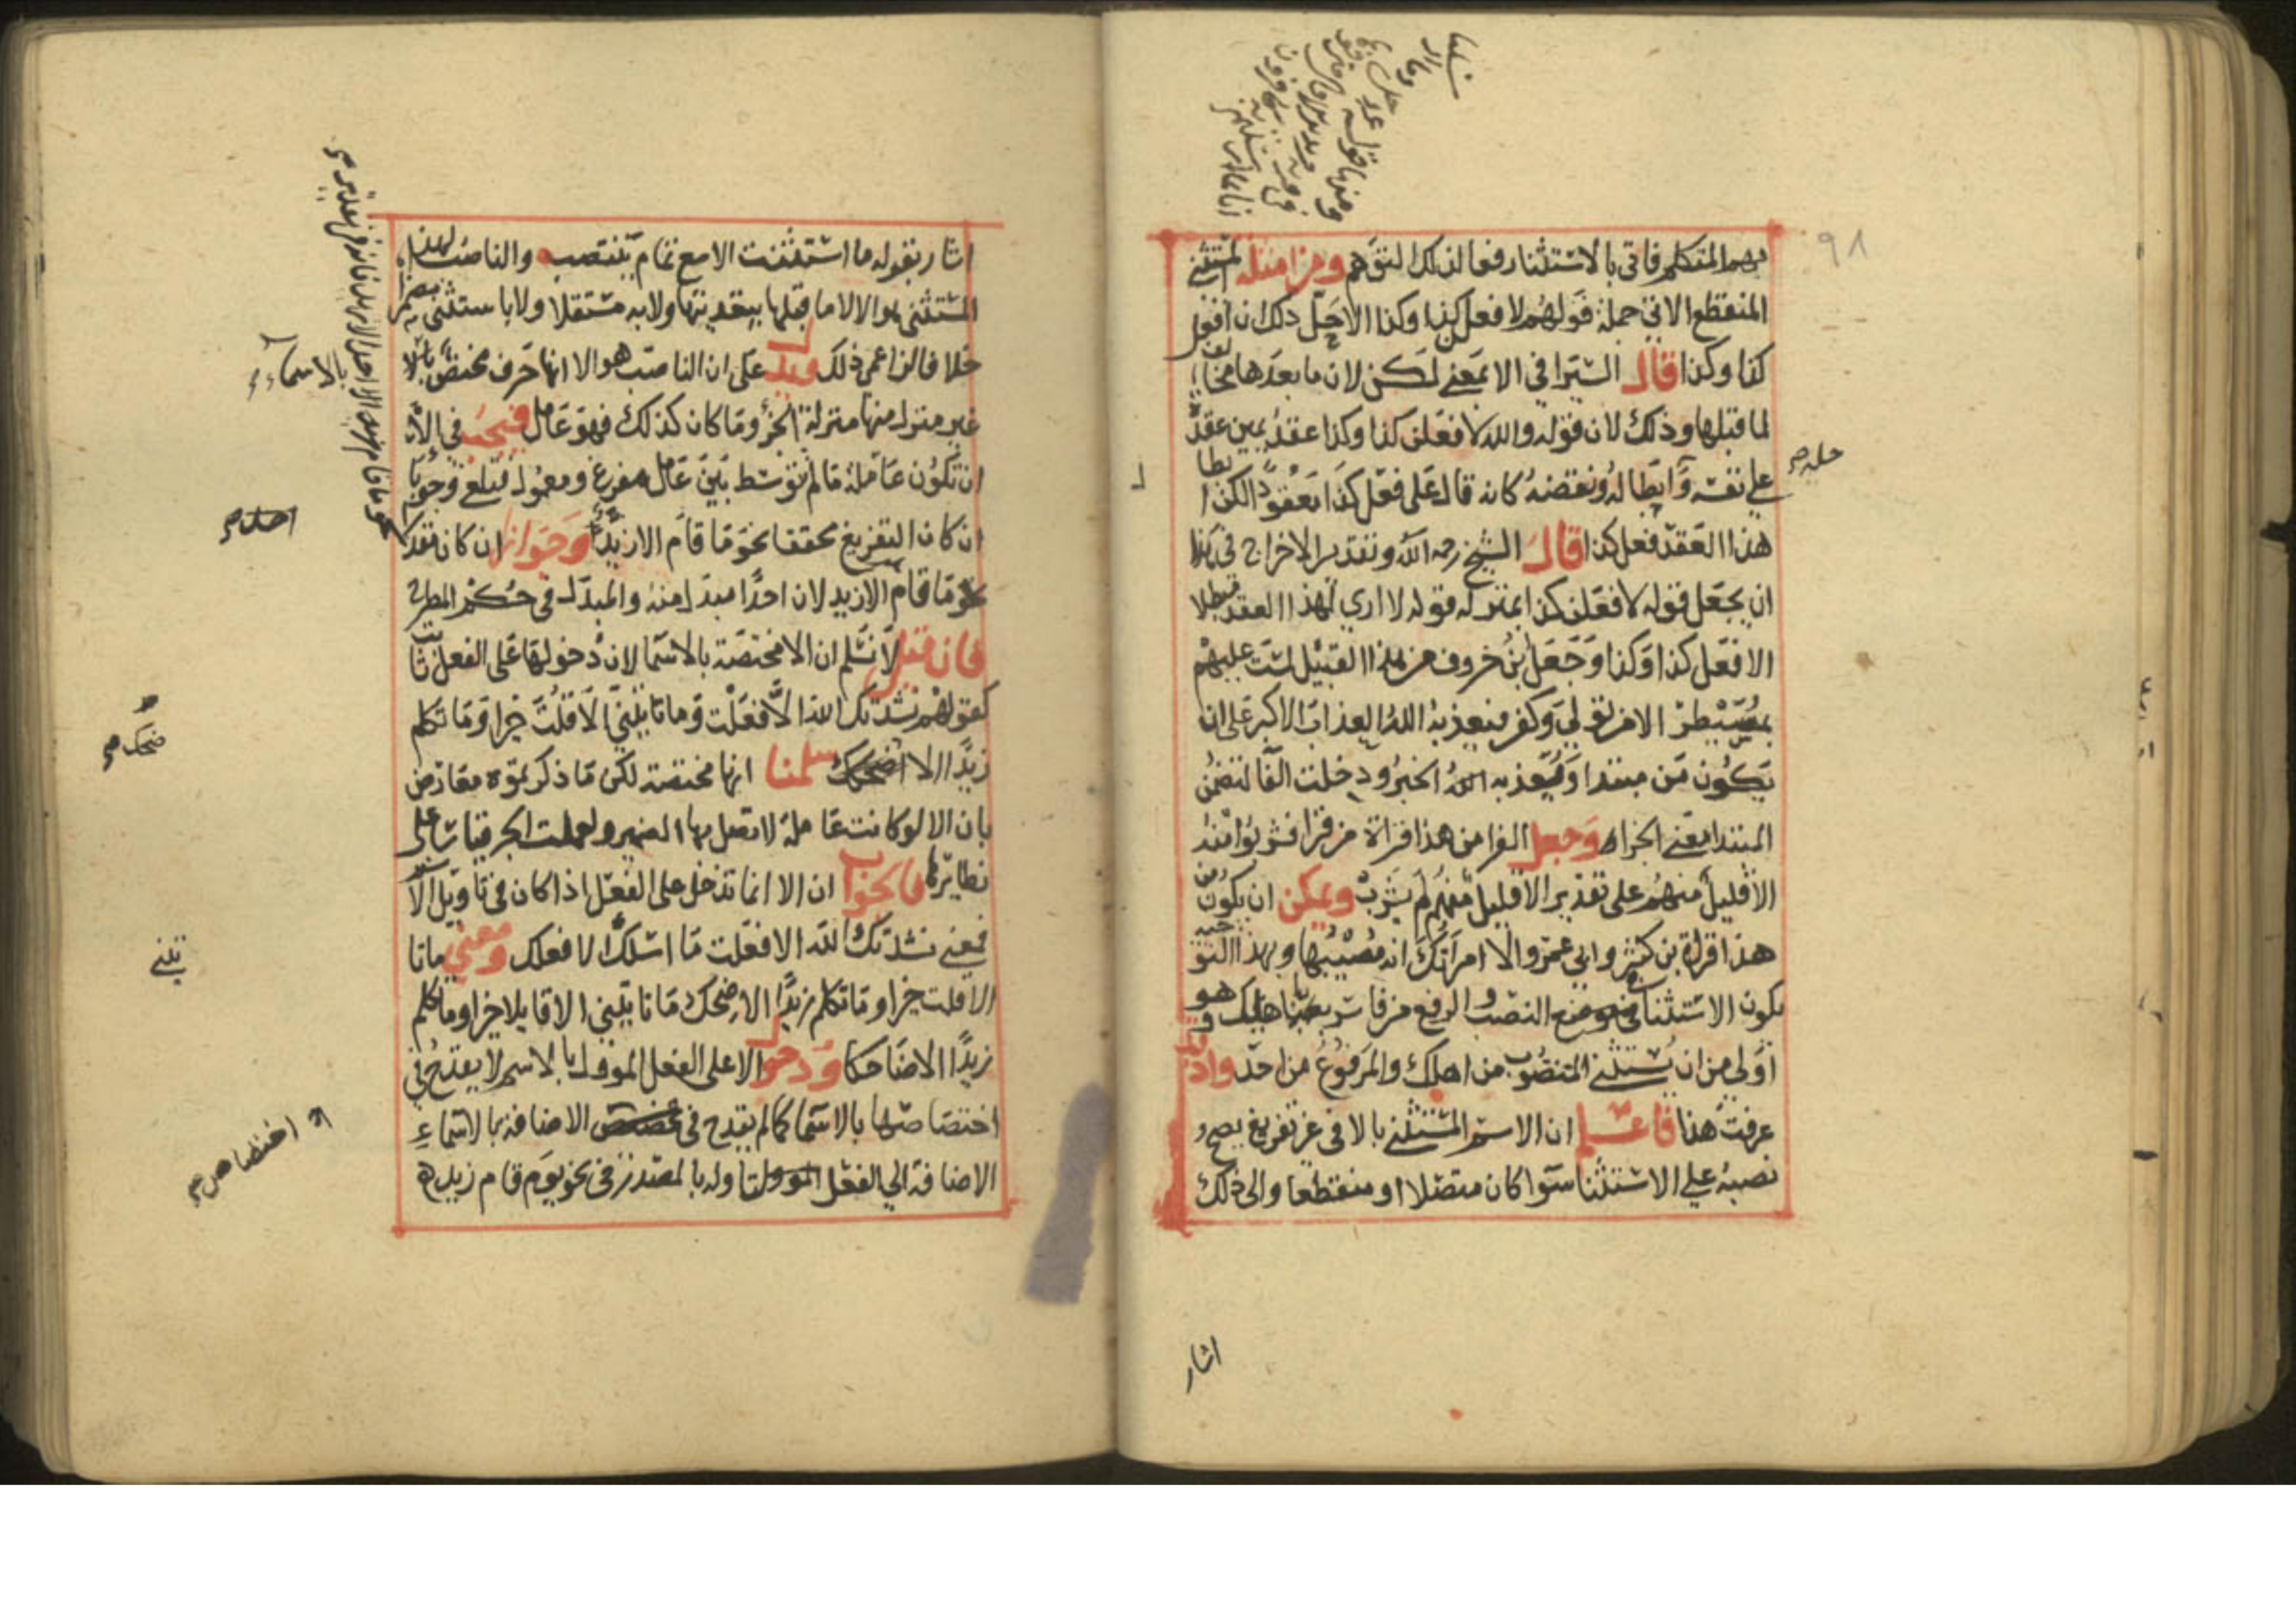 ٩٨
بهم المتكلم فاتى بالاستثنا رفعا لذلك التوهم ومن امثلة المستثنى
المنقطع الاتي جملة قولهم لافعلن كذا وكذا الا حل ذلك ان افعل
كذا وكذا قال السيرافي الا بمعنى لكن لان ما بعدها مخالف
لما قبلها وذلك لان قوله والله لافعلن كذا وكذا عقد يمين عقده
على نفسه وابطاله ونقضه كانه قال على فعل كذا معقودا لكن ابطا
هذا العقد فعل كذا قال الشيخ رحمه الله وتقدير الاخراج في هذا
ان يجعل قوله لافعلن كذا بمنزلة قوله لا ارى لهذا العقد مبطلا
الا فعل كذا وكذا وجعل بن خروف من هذا القبيل لست عليهم
بمسيطر الا من تولى وكفر فيعذبه الله العذاب الاكبر على ان
يكون من مبتدا ويعذبه الله الخبر ودخلت الفا لتضمن
المبتدا معنى الجزاء وجعل الفرا من هذا قراة من قرا فشربوا منه
الا قليل منهم على تقدير الا قليل منهم لم يشرب ويمكن ان يكون من
هذا قراة بن كثير وابي عمرو الا امراتك انه مصيبها وبهذا التوجيه
يكون الاستثنا في النصب والرفع من فاسر باهلك وهو
اولى من ان يستثنى المنصوب من اهلك والمرفوع من احد واذا
عرفت هذا فاعلم ان الاسم المستثنى بالا في غير تفريغ يصح
نصبه على الاستثنا سوا كان متصلا او منقطعا والى ذلك
اشار
اشار بقوله ما استثنت الا مع تمام ينتصب والناصب لهذا
المستثنى هو الا لا ما قبلها بتقويتها ولا به مستقلا ولا باستثنى مضمرا
خلافا لزاعمي ذلك فيدل على ان الناصب هو الا انها حرف مختص بالا
غير منزل منها منزلة الجزو وما كان كذلك فهو عامل فيجب في الا
ان تكون عاملة ما لم تتوسط بين عامل مفرغ ومعمول فتلغى وجوبا
ان كان التفريغ محققا نحو ما قام الا زيد وجوازا ان كان مقدرا
نحو ما قام الا زيد لان احدا مبدل منه والمبدل في حكم المطرح
فان قيل لا نسلم ان الا مختصة بالاسما لان دخولها على الفعل ثابت
كقولهم نشدتك الله الا فعلت وما تاتيني الا قلت خيرا وما تكلم
زيد الا ضحك سلمنا انها مختصة لكن ما ذكرتموه معارض
بان الا لو كانت عاملة لاتصل بها الضمير ولعملت الجر قياسا على
نظائرها فالجواب ان الا انما تدخل على الفعل اذا كان في تاويل الاسم
فمعنى نشدتك الله الا فعلت ما اسئلك الا فعلك ومعنى ما تا
الا قلت خيرا وما تكلم زيد الا ضحك ما تاتيني الا قايلا خيرا وما تكلم
زيد الا ضاحكا ودخول الا على الفعل الموول بالاسم لا يقدح في
اختصاصها بالاسما كما لم يقدح في الاضافة بالاسماء
الاضافة الى الفعل لتاوله بالمصدر في نحو يوم قام زيد
بالاسماء
ضحك
اختصاص